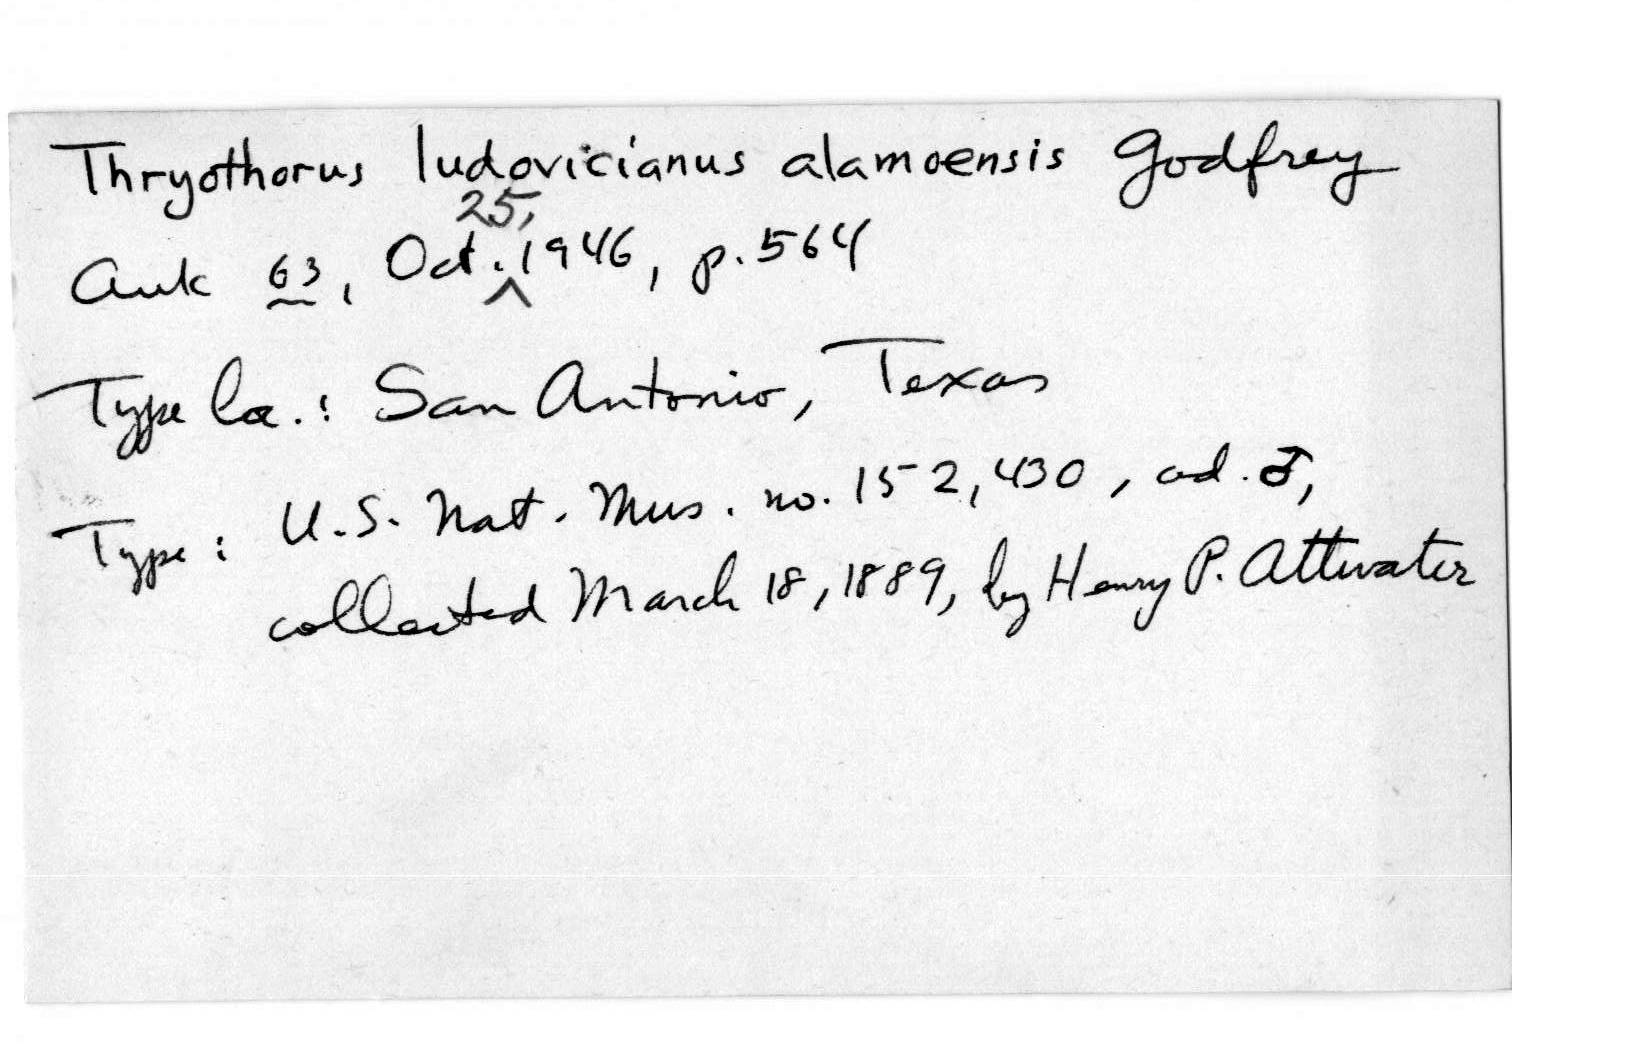 Thryothorus ludovicianus alamoensis Godfrey
Auk 63, Oct. 25, 1946, p. 564
Type loc.: San Antonio, Texas
Type: U.S. Nat. Mus. no. 152,430, ad. ♂,
collected March 18, 1889, by Henry P. Attwater